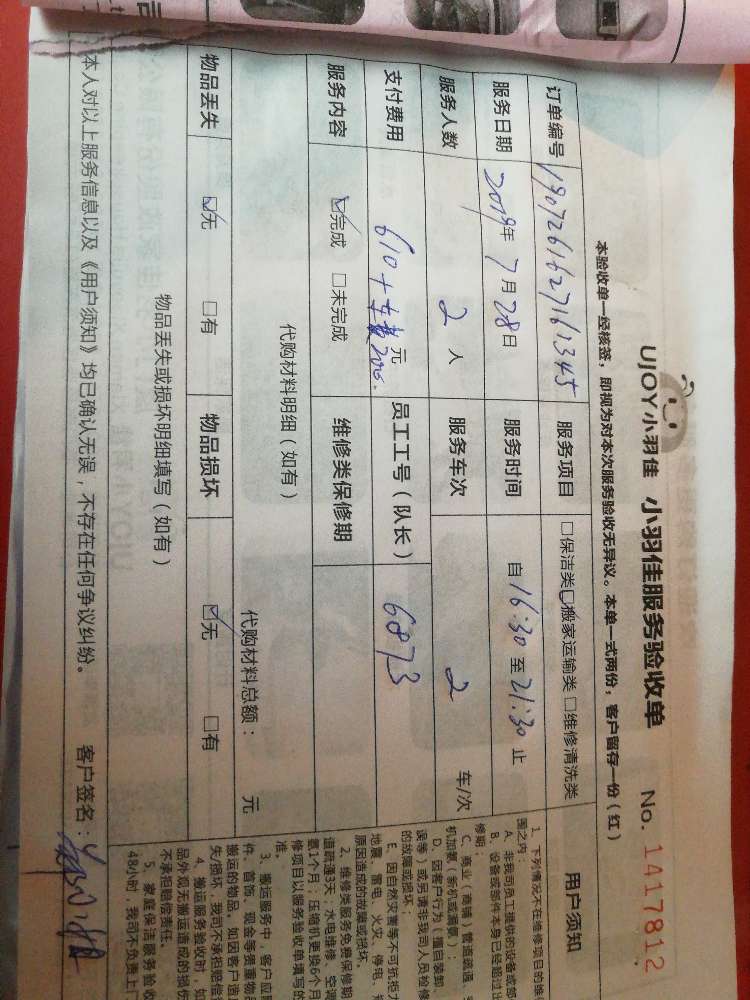 UJOY小羽佳 小羽佳服务验收单 No. 1417812
本验收单一经核签，即视为对本次服务验收无异议。本单一式两份，客户留存一份（红）
订单编号 1907261627161345 服务项目 □保洁类 ☑搬家运输类 □维修清洗类
服务日期 2019年 7月 28日 服务时间 自 16:30 至 21:30 止
服务人数 2 人 服务车次 2 车/次
支付费用 610+车费200. 元 员工工号（队长） 6873
服务内容 ☑完成 □未完成 维修类保修期
代购材料明细（如有） 代购材料总额： 元
物品丢失 ☑无 □有 物品损坏 ☑无 □有
物品丢失或损坏明细填写（如有）
本人对以上服务信息以及《用户须知》均已确认无误，不存在任何争议纠纷。 客户签名：
用户须知
1、下列情况不在维修项目的维
围之内：
A、非我司员工提供的设备或部
B、设备或部件本身已经超过出
修期；
C、商业（商铺）管道疏通、
机加氨（新机或漏氨）；
D、因客户行为（擅自装卸、
误等）或另请非我司人员检修
的故障或损坏；
E、因自然灾害等不可抗拒力
地震、雷电、火灾、停电、
原因造成的故障或损坏。
2、维修类服务免费保修期
道疏通3天；水电维修、空调
氨1个月；压缩机更换6个月
修项目以服务验收单填写的
准。
3、搬运服务中，客户应
件、首饰、现金等贵重物品
搬运的物品。如因客户造
失/损坏，我司不承担赔偿
4、搬运服务验收时，如
品外观无搬运造成的损伤
不承担赔偿责任。
5、家庭保洁服务验收
48小时，我司不负责上门